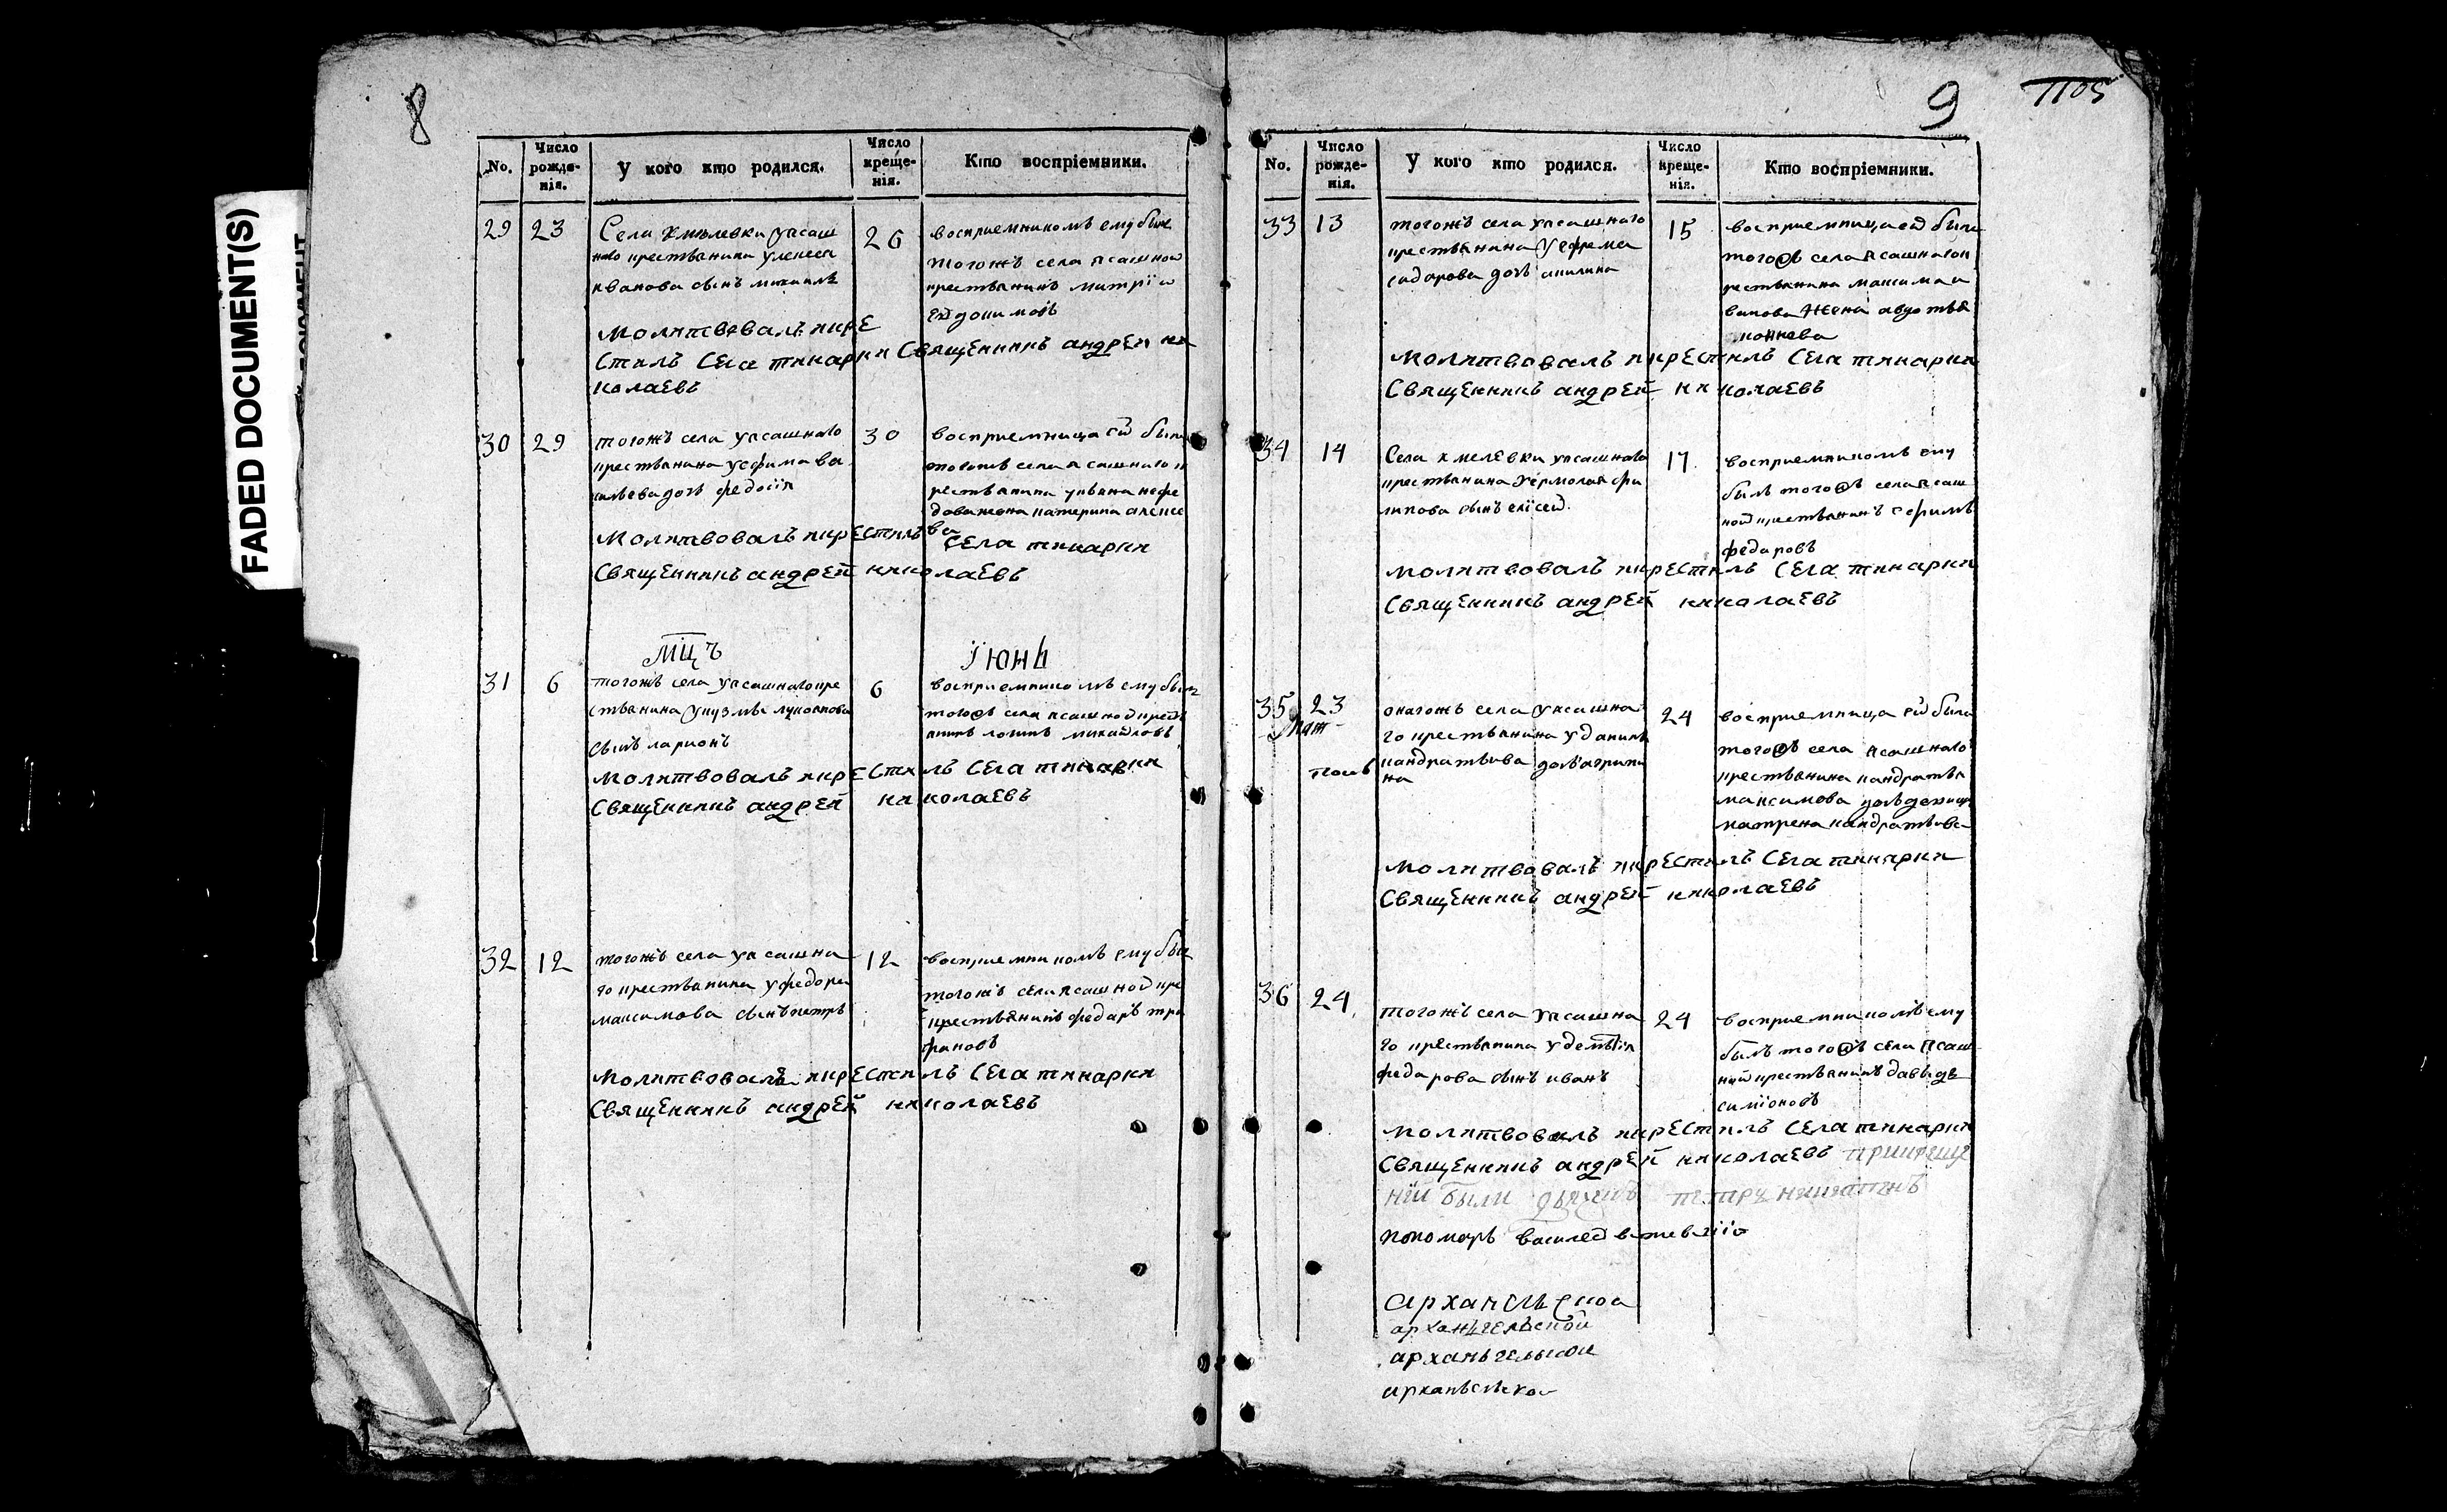 FADED DOCUMENT(S)
8
No.
Число рожденія.
У кого кто родился.
Число крещенія.
Кто воспріемники.
29 23
Села хмѣлевки упсаш
наго крестьянина
иванова сынъ михаилъ
26
восприемникомъ ему былъ
тогожъ села
крестьянинъ митрiи
евдокимовъ
Молитвовалъ икре
стилъ Села тинарки Священникъ андреи ни
колаевъ
30 29
тогожъ села упсашнаго
крестьянина уефима ва
сильева дочь федосiя
30
восприемница ей была
тогожъ села псашнаго к
рестьянина уивана нефе
дова жена катерина алексе
ва
Молитвовалъ икрестилъ Села тинарки
Священникъ андрей николаевъ
мцъ Iюнь
31 6
тогожъ села упсашнаго кре
стьянина укузмы
сынъ ларионъ
6
восприемникомъ ему былъ
тогожъ села псашной крест
анинъ михайловъ
Молитвовалъ икрестилъ Села тинарки
Священникъ андрей николаевъ
32 12
тогожъ села упсашна
го крестьянина уфедора
максимова сынъ петръ
12
восприемникомъ ему былъ
тогожъ села псашной кре
крестьянинъ федаръ тра
фимовъ
Молитвовалъ икрестилъ Села тинарки
Священникъ андрей николаевъ
9
No.
Число рожденія.
У кого кто родился.
Число крещенія.
Кто воспріемники.
33 13
тогожъ села упсашнаго
крестьянина уефрема
сидорова дочь акилина
15
восприемница ей была
тогожъ села псашнагок
рестьянина максима и
ванова жена авдотья
Молитвовалъ икрестилъ Села тинарки
Священникъ андрей николаевъ
34 14
Села хмелевки упсашнаго
крестьянина уермолая фи
липова сынъ елiсей
17
восприемникомъ ему
былъ тогожъ села псаш
ной крестьянинъ ефимъ
федаровъ
Молитвовалъ икрестилъ Села тинарки
Священникъ андрей николаевъ
35 23
онагожъ села упсашна
го крестьянина уданилы
кандратьива дочь агрипи
на
24
восприемница ей была
тогожъ села псашнаго
крестьянина кандратья
максимова дочь девица
матрена кандратьива
Молитвовалъ икрестилъ Села тинарки
Священникъ андрей николаевъ
36 24
тогожъ села упсашна
го крестьянина
федарова сынъ иванъ
24
восприемникомъ ему
былъ тогожъ села псаш
ной крестьянинъ давыдъ
симiоновъ
Молитвовалъ икрестилъ Села тинарки
Священникъ андрей николаевъ прикреще
нiи были
пономарь василей
архангельскои
архангельской
архангельской